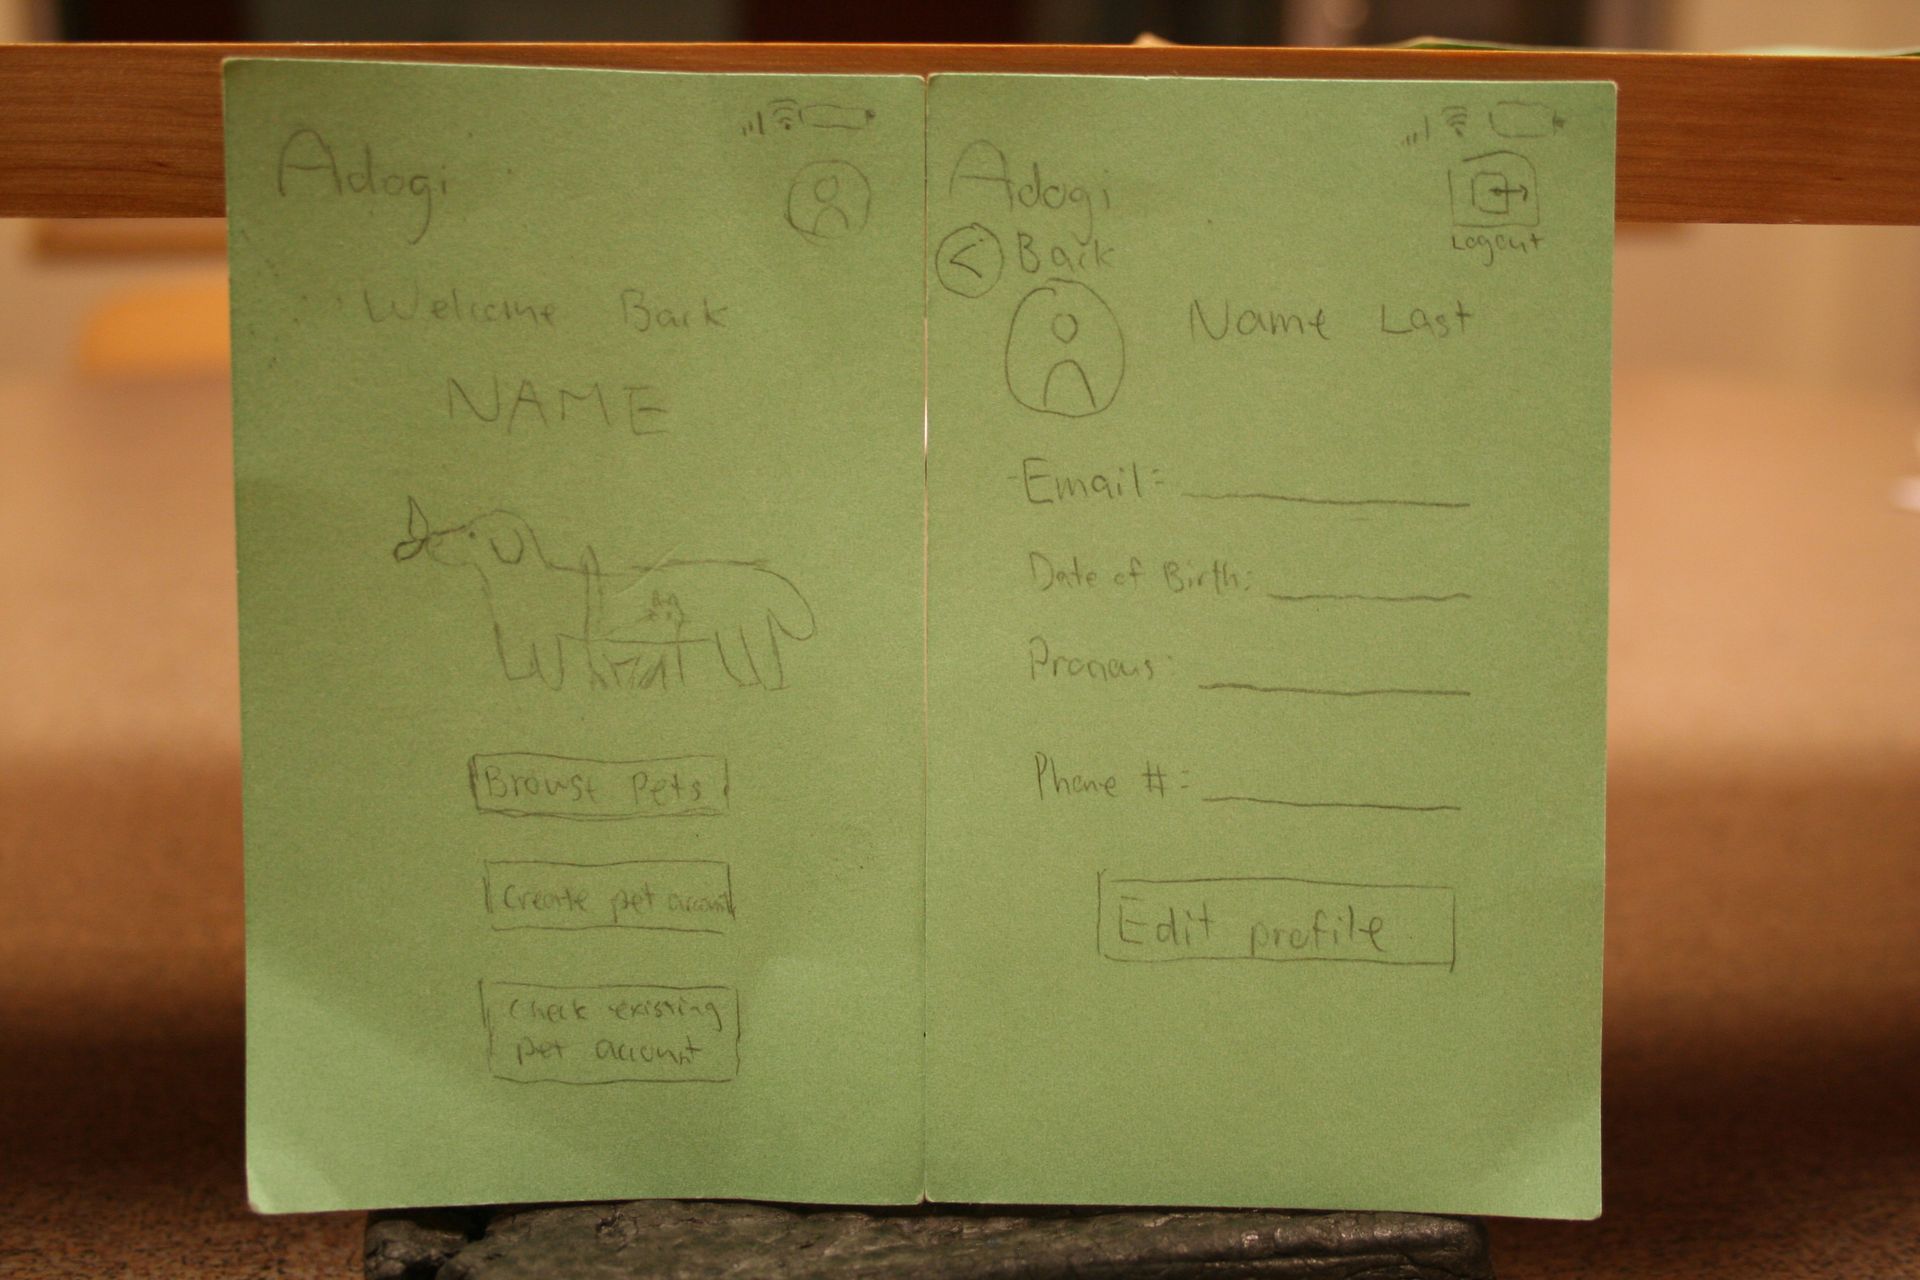 Adogi
Welcome Back
NAME
Browse Pets
Create pet account
Check existing
pet account
Adogi
Logout
< Back
Name Last
Email:
Date of Birth:
Pronous:
Phone #:
Edit profile